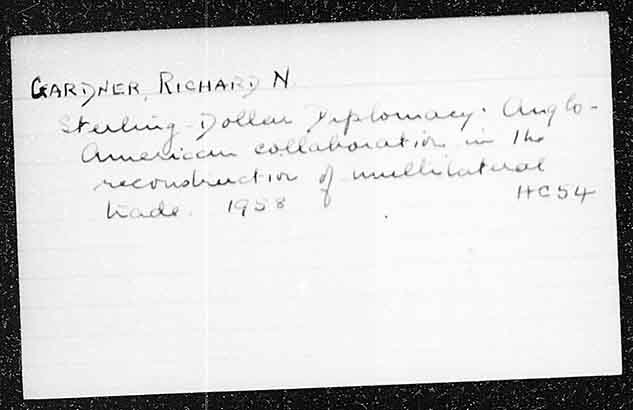 GARDNER, RICHARD N
Sterling-Dollar Diplomacy. Anglo-
American collaboration in the
reconstruction of multilateral
trade. 1958 HC54